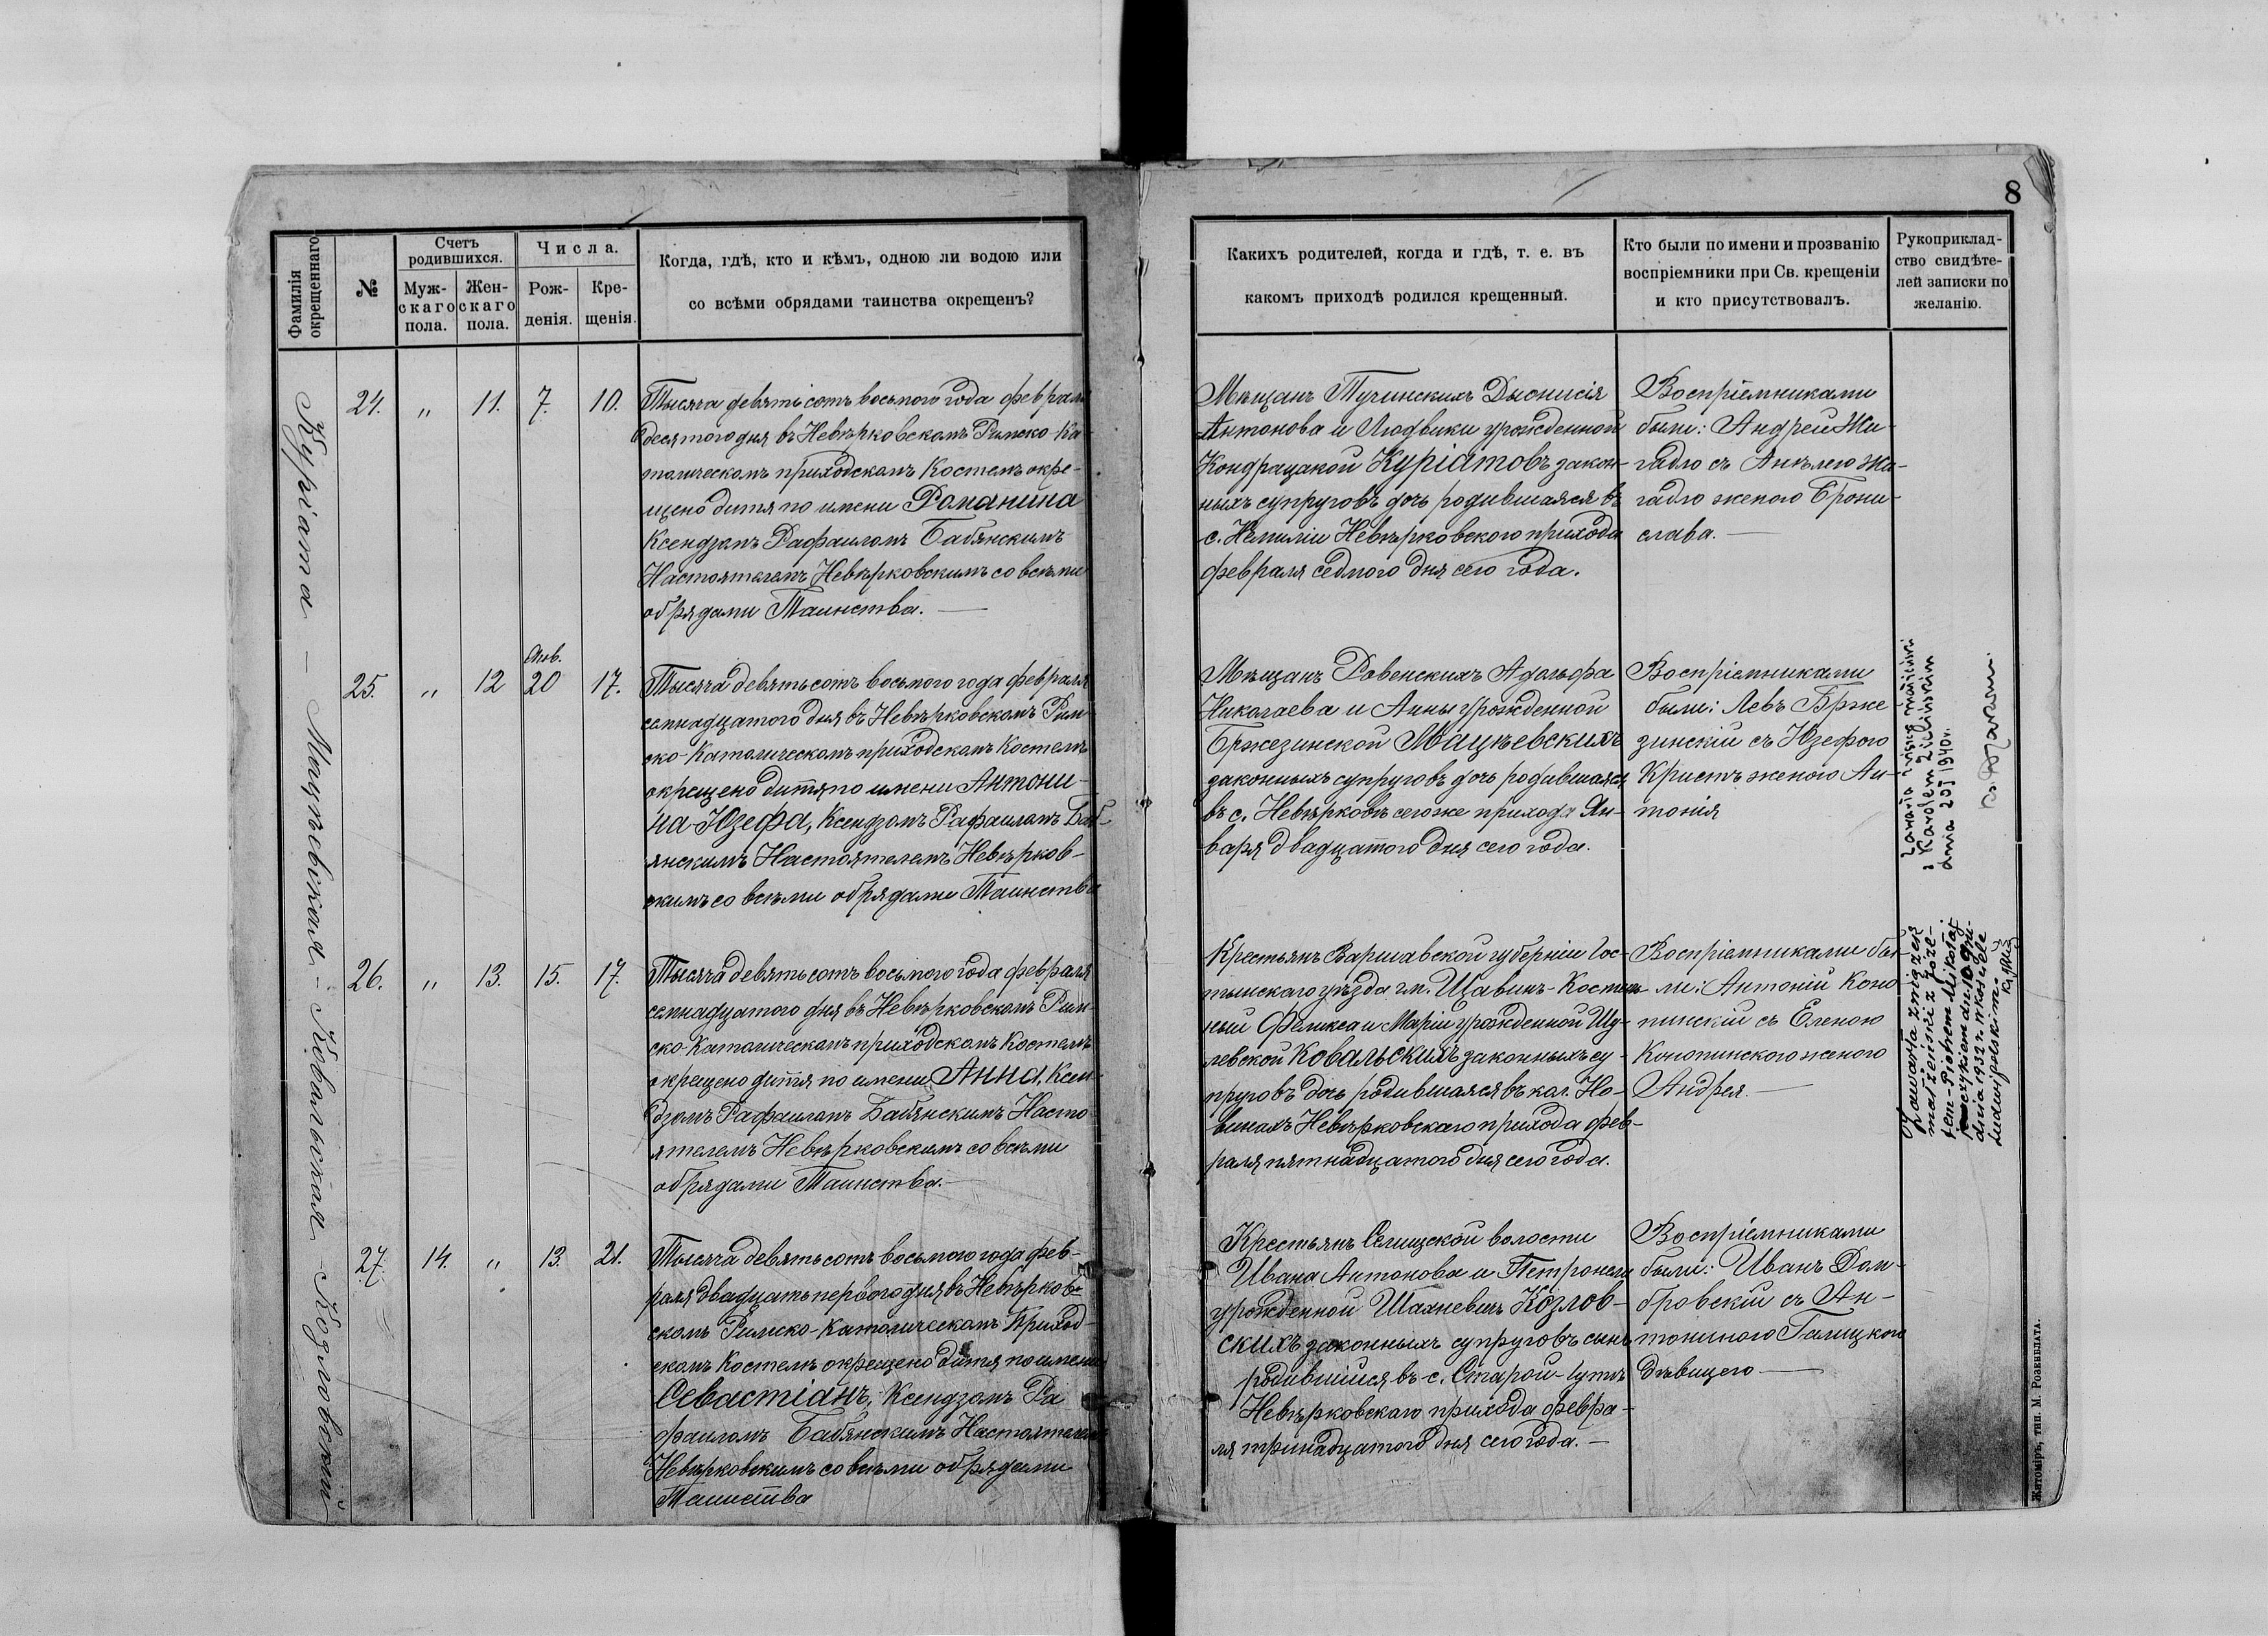 8
Фамилія окрещеннаго
№
Счетъ родившихся.
Муж-
скаго
пола.
Жен-
скаго
пола.
Числа.
Рож-
денія.
Кре-
щенія.
Когда, гдѣ, кто и кѣмъ, одною ли водою или
со всѣми обрядами таинства окрещенъ?
Какихъ родителей, когда и гдѣ, т. е. въ
какомъ приходѣ родился крещенный.
Кто были по имени и прозванію
воспріемники при Св. крещеніи
и кто присутствовалъ.
Рукоприклад-
ство свидѣте-
лей записки по
желанію.
Куріата — Мацкевская - Ковальская - Козловскій
24. " 11. 7. 10.
Тысяча девятьсотъ восьмого года февраля
десятого дня въ Невѣрковскомъ Римско-Ка-
толическомъ приходскомъ Костелѣ окре-
щено дитя по имени Романина
Ксендзомъ Рафаиломъ Бабянскимъ
Настоятелемъ Невѣрковскимъ со всѣми
обрядами Таинства. —
Мѣщанъ Тучинскихъ Діонисія
Антонова и Людвики урожденной
Кондрацкой Куріатовъ закон-
ныхъ супруговъ дочь родившаяся въ
с. Немиліи Невѣрковского прихода
февраля седмого дня сего года.
Воспріемниками
были: Андрей Жи-
гадло съ Анѣлею Жи-
гадло женою Брони-
слава. —
25. " 12 Янв. 20 17.
Тысяча девятьсотъ восьмого года февраля
семнадцатого дня въ Невѣрковскомъ Рим-
ско-Католическомъ приходскомъ Костелѣ
окрещено дитя по имени Антони-
на-Юзефа, Ксендзомъ Рафаиломъ Баб-
янскимъ Настоятелемъ Невѣрков-
скимъ со всѣми обрядами Таинства
Мѣщанъ Ровенскихъ Адольфа
Николаева и Анны урожденной
Бржезинской Мацкевскихъ
законныхъ супруговъ дочь родившаяся
въ с. Невѣрковѣ сегоже прихода Ян-
варя двадцатого дня сего года.
Воспріемниками
были: Левъ Брже
зинскій съ Юзефою
Кристъ женою Ан-
тонія
Zawarła związek małżeński
z Karolem Zielińskim
dnia 1940 r.
26. " 13. 15. 17.
Тысяча девятьсотъ восьмого года февраля
семнадцатого дня въ Невѣрковскомъ Рим-
ско-Католическомъ приходскомъ Костелѣ
окрещено дитя по имени Анна, Ксен-
дзомъ Рафаиломъ Бабянскимъ Насто-
ятелемъ Невѣрковскимъ со всѣми
обрядами Таинства.—
Крестьянъ Варшавской губерніи Гос-
тынскаго уѣзда гм. Щавинъ-Костель-
ный Феликса и Маріи урожденной Шу-
левской Ковальскихъ законныхъ су-
пруговъ дочь родившаяся въ кол. Но-
винахъ Невѣрковскаго прихода фев-
раля пятнадцатого дня сего года.
Воспріемниками бы-
ли: Антоній Коно-
пинскій съ Еленою
Конопинского женою
Андрея. —
Zawarła związek
małżeński z Józe-
fem-Piotrem Mikołaj-
czykiem dn. 10 gru-
dnia 1932 r. w kościele
Ludwipolskim.
27. 14. " 13. 21.
Тысяча девятьсотъ восьмого года фев-
раля двадцать первого дня въ Невѣрков-
скомъ Римско-Католическомъ Приход-
скомъ Костелѣ окрещено дитя по имени
Севастіанъ, Ксендзомъ Ра
фаиломъ Бабянскимъ Настоятелемъ
Невѣрковскимъ со всѣми обрядами
Таинства
Крестьянъ Селищской волости
Ивана Антонова и Петронели
урожденной Шахневичъ Козлов-
скихъ законныхъ супруговъ сынъ
родившійся въ с. Старой-Гутѣ
Невѣрковскаго прихода февра-
ля тринадцатого дня сего года. —
Воспріемниками
были: Иванъ Дом-
бровскій съ Ан-
тониною Галицкою
дѣвицею —
Житоміръ, тип. М. Розенблата.